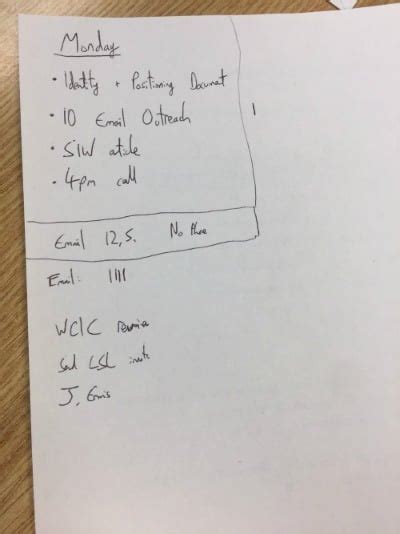 Monday
• Identity + Positioning Document
• 10 Email Outreach
• SIW article
• 4pm call
Email 12, 5. No Phone
Email: IIII
WCIC
LSL
J.